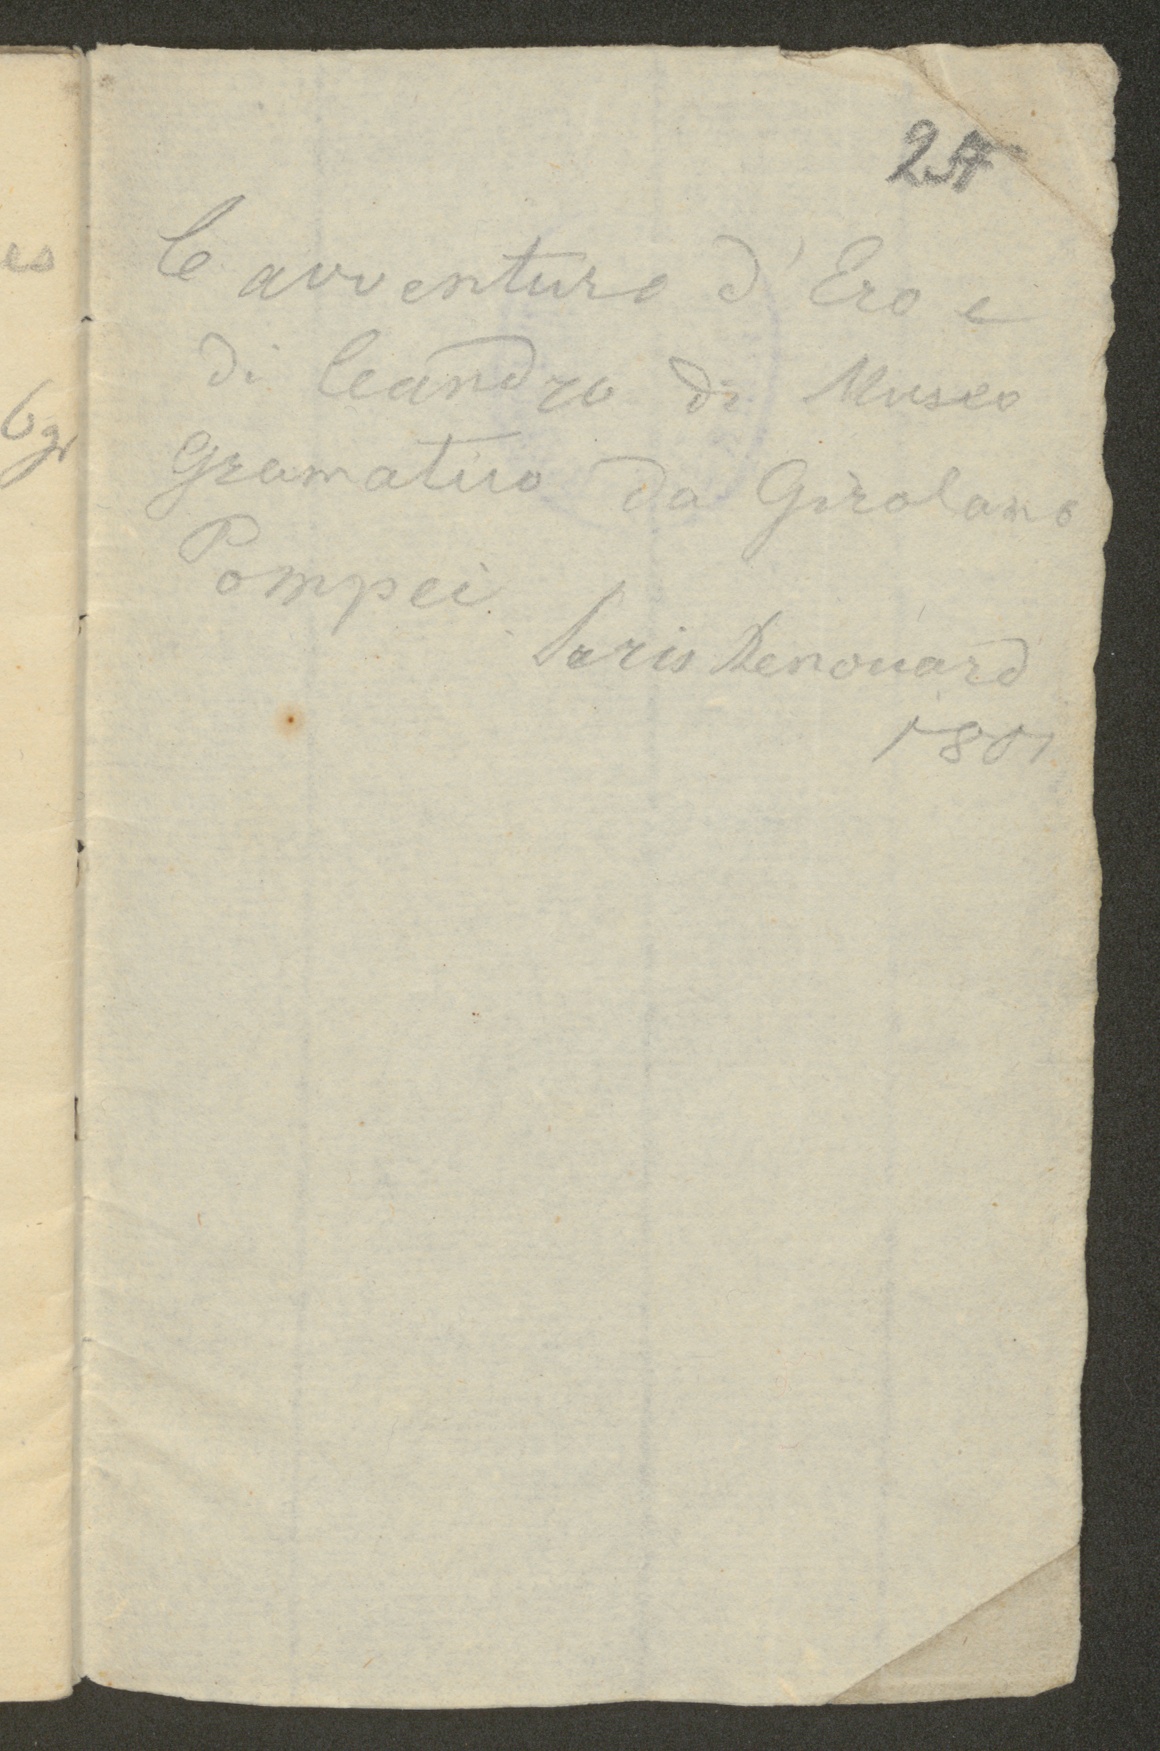 25
Le avventure d'Ero e
es
di Leandro di Museo
6 gr
Gramatico da Girolamo
Pompei.
Paris Renouard
1801